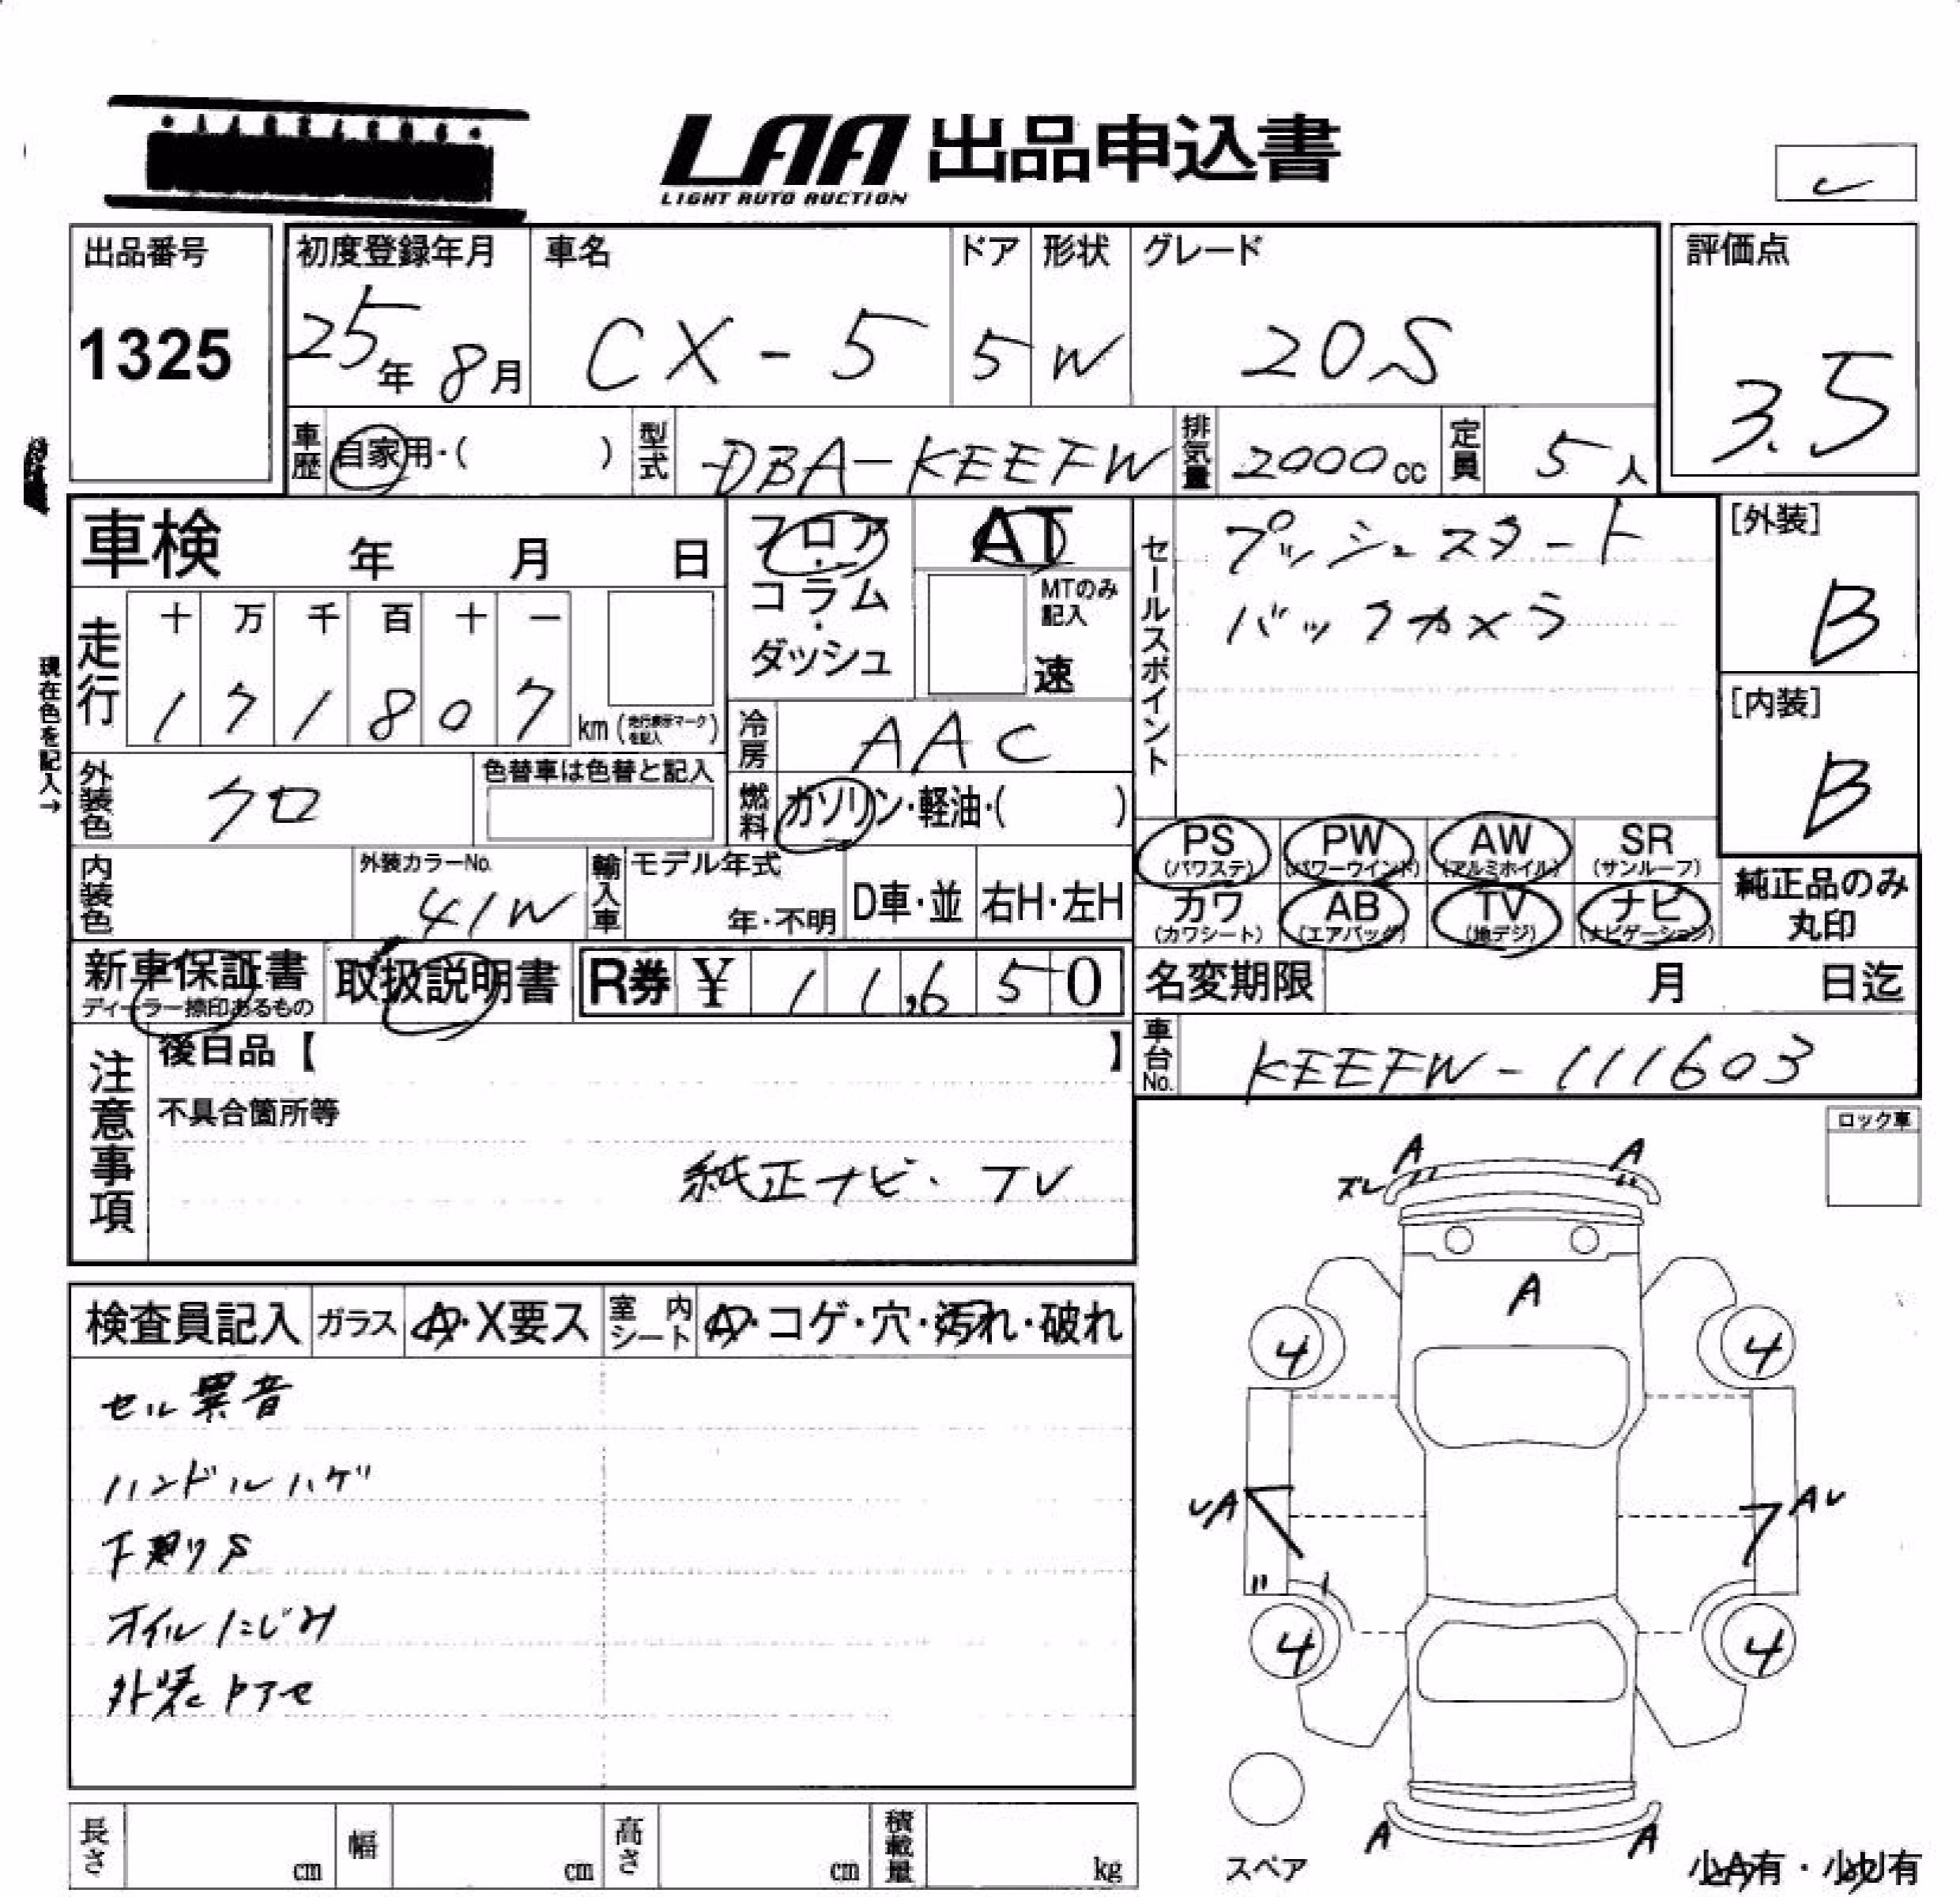 LAA 出品申込書
LIGHT AUTO AUCTION
出品番号
1325
初度登録年月
25年 8月
車名
CX-5
ドア
5
形状
W
グレード
20S
評価点
3.5
車歴
自家用・( )
型式
DBA-KEEFW
排気量
2000cc
定員
5人
車検 年 月 日
フロア・
コラム・
ダッシュ
AT
MTのみ
記入
速
セールスポイント
プッシュスタート
バックカメラ
[外装]
B
[内装]
B
現在色を記入→
走行
十 万 千 百 十 一
1 7 1 8 0 7
km(走行表示マークを記入)
冷房
AAC
外装色
クロ
色替車は色替と記入
燃料
ガソリン・軽油・( )
PS
(パワステ)
PW
(パワーウインド)
AW
(アルミホイル)
SR
(サンルーフ)
カワ
(カワシート)
AB
(エアバッグ)
TV
(地デジ)
ナビ
(ナビゲーション)
純正品のみ
丸印
内装色
外装カラーNo.
41W
輸入車
モデル年式
年・不明
D車・並
右H・左H
新車保証書
ディーラー捺印あるもの
取扱説明書
R券 ¥ 11,650
名変期限 月 日迄
車台No.
KEEFW-111603
注意事項
後日品【 】
不具合箇所等
純正ナビ・TV
ロック車
検査員記入
ガラス
A・X要ス
室内シート
A・コゲ・穴・汚れ・破れ
セル異音
ハンドルハゲ
下廻りS
オイルにじみ
外装色アセ
A A
ズレ
A
4 4
レA Aレ
4 4
A A
スペア
小A有・小U有
長さ cm
幅 cm
高さ cm
積載量 kg